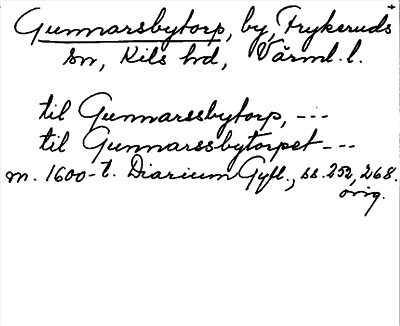 Gunnarsbytorp, by, Frykeruds
sn, Kils hd, Värml. l.
til Gunnarssbytorp, ---
til Gunnarssbytorpet ---
m. 1600-t. Diarium Gyfl., ss. 252, 268.
orig.